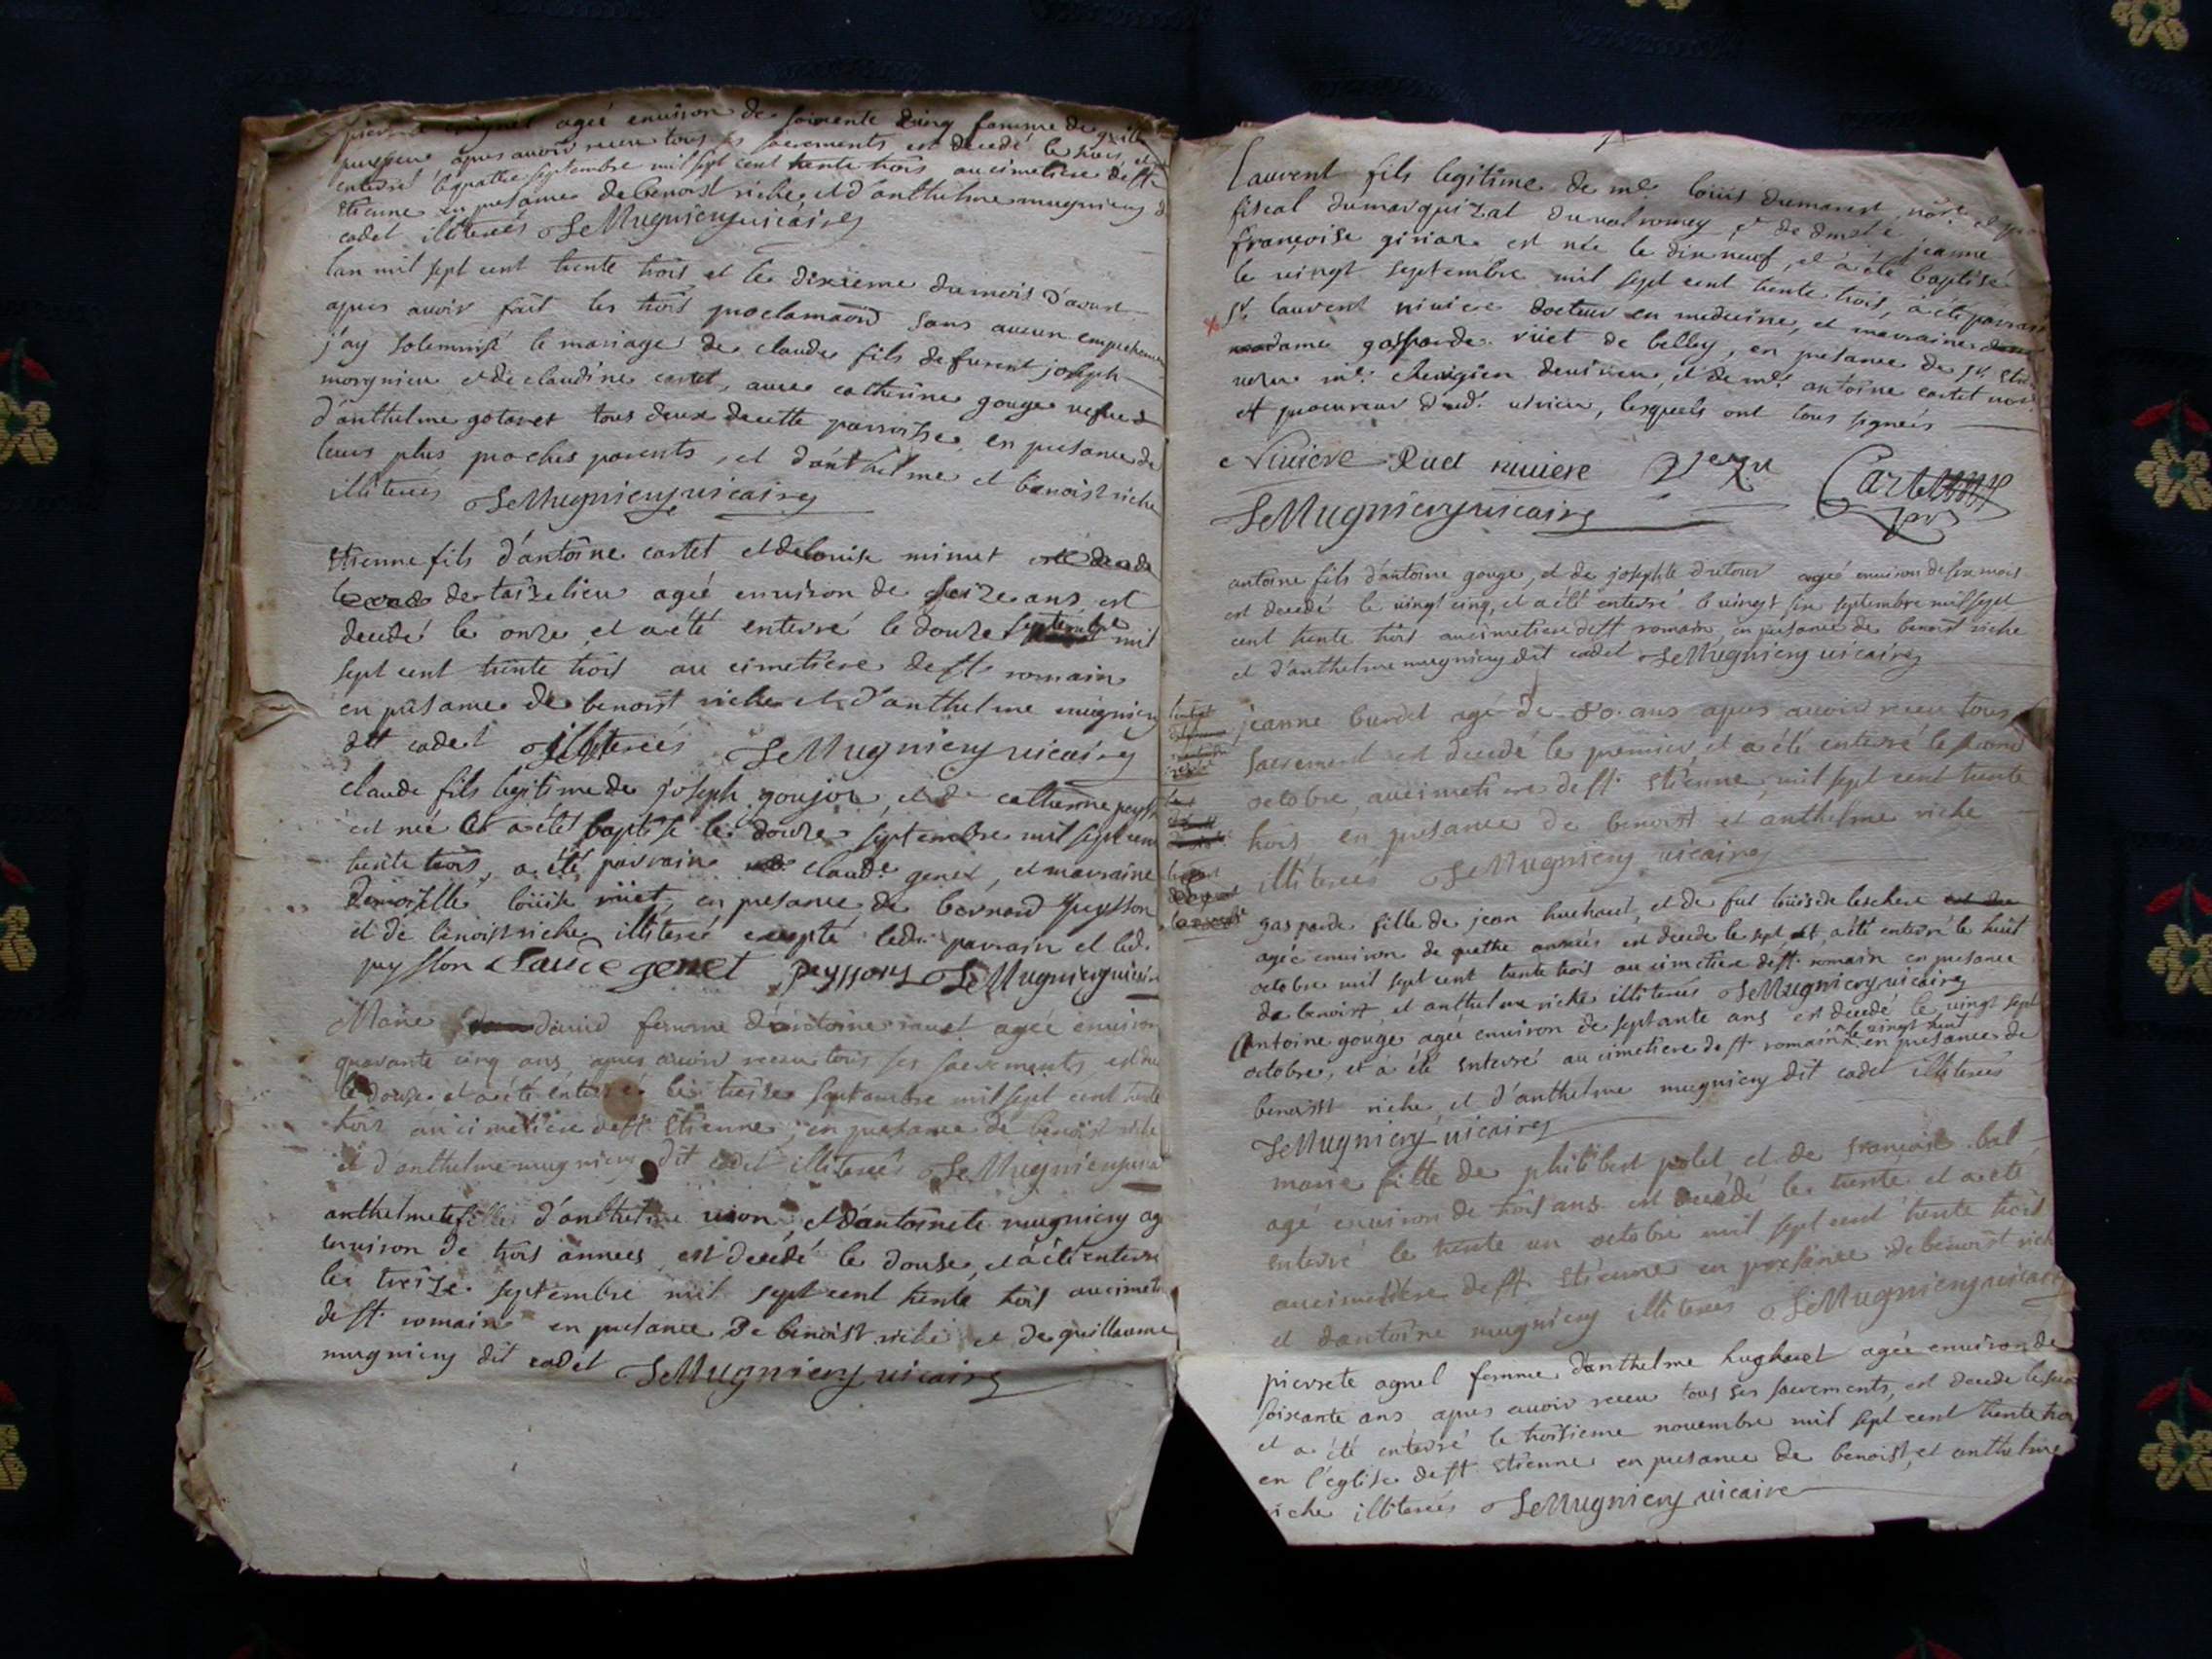 agée enuiron de soixente cinq femme de
apres auoir receu tous ses sacrements est decedé le trois, et
enterré le quattre septembre mil sept cent trente trois au cimetiere de st
Etienne en presance de benoist riche, et d'anthelme mugniery d
cadet illiterés SeMugniery vicaire
lan mil sept cent trente trois et le dixieme du mois d'aoust
apres auoir fait les trois proclamaõns sans aucun empechemen
j'ay solemnisé le mariage de claude fils de furent joseph
morgnieu et de claudine cartet, auec catherine gouge vefue
d'anthelme gotaret tous deux de cette parroisse, en presance de
leurs plus proches parents, et d'anthelme et benoist riche
illiterés SeMugniery vicaire
Etienne fils d'antoine cartet et de louise minut
de taizelieu agée enuiron de seize ans est
decedé le onze, et a eté enterré le douze septembre mil
sept cent trente trois au cimetiere de st romain
en presance de benoist riche et d'anthelme mugniery
dit cadet illiterés SeMugniery vicaire
claude fils legitime de joseph goujon, et de catherine peyss
est née et a eté baptisé le douze septembre mil sept cen
trente trois, a eté parrain claude genet, et marraine
demoiselle loüise riüet, en presance de bernard peysson
et de benoist riche illiteré excepté led. parrain et led.
peysson Claude genet peysson SeMugniery vicair
Marie dauid femme d'antoine agée enuiron
quarante cinq ans, apres auoir receu tous ses sacrements, est de
le douze et a eté enterré le treize septembre mil sept cent trente
trois au cimetiere de st Etienne, en presance de benoist riche
et d'anthelme mugniery dit cadet illiterés SeMugniery
anthelmete fille d'anthelme, et d'antoinete mugniery ag
enuiron de trois années est decedé le douse, et a eté enterré
le treize septembre mil sept cent trente trois au cimet
de st romain en presance de benoist riche et de guillaume
mugniery dit cadet SeMugniery vicaire
Laurent fils legitime de me. loüis dumarest, nore et pr
fiscal du marquizat du valromey et de jeanne
françoise est née le dixneuf, et a eté baptisé
le vingt septembre mil sept cent trente trois, a eté parrain
sr. laurent riuiere docteur en medecine, et marraine
madame gasparde riüet de belley, en presance de sr.
me. et de me. antoine cartet nore.
et procureur, lesquels ont tous signés
Riuiere Riuet riuiere Cartet
SeMugniery vicaire
antoine fils d'antoine gouge, et de josephte dutour agée enuiron de six mois
est decedé le vingt cinq, et a eté enterré le vingt six septembre mil sept
cent trente trois au cimetiere de st romain, en presance de benoist riche
et d'anthelme mugniery dit cadet SeMugniery vicaire
jeanne burdet agé de 80 ans apres auoir receu tous
sacrement est decedé le premier, et a eté enterré le second
octobre, au cimetiere de st. Etienne, mil sept cent trente
trois en presance de benoist et anthelme riche
illiterés SeMugniery vicaire
gasparde fille de jean huchaut, et de fut loüise leschere
agée enuiron de quathe années est decede le sept, et a eté enterré le huit
octobre mil sept cent trente trois au cimetiere de st. romain en presance
de benoist et anthelme riche illiterés SeMugniery vicaire
Antoine gouge agée enuiron de septante ans est decedé le vingt sept
octobre, et a eté enterré au cimetiere de st romain le vingt huit en presance de
benoist riche, et d'anthelme mugniery dit cadet illiterés
SeMugniery vicaire
marie fille de philibert polet, et de françoise bal
agé enuiron de trois ans est decedé le trente et a eté
enterré le trente un octobre mil sept cent trente trois
au cimetiere de st Etienne en presance de benoist rich
et d'antoine mugniery illiterés SeMugniery vicaire
pierrete agnel femme d'anthelme hughaet agée enuiron de
soixante ans apres auoir receu tous ses sacrements, est decede le
et a eté enterré le troisieme nouembre mil sept cent trente tro
en l'eglise de st Etienne en presance de benoist, et anthelme
riche illiterés SeMugniery vicaire